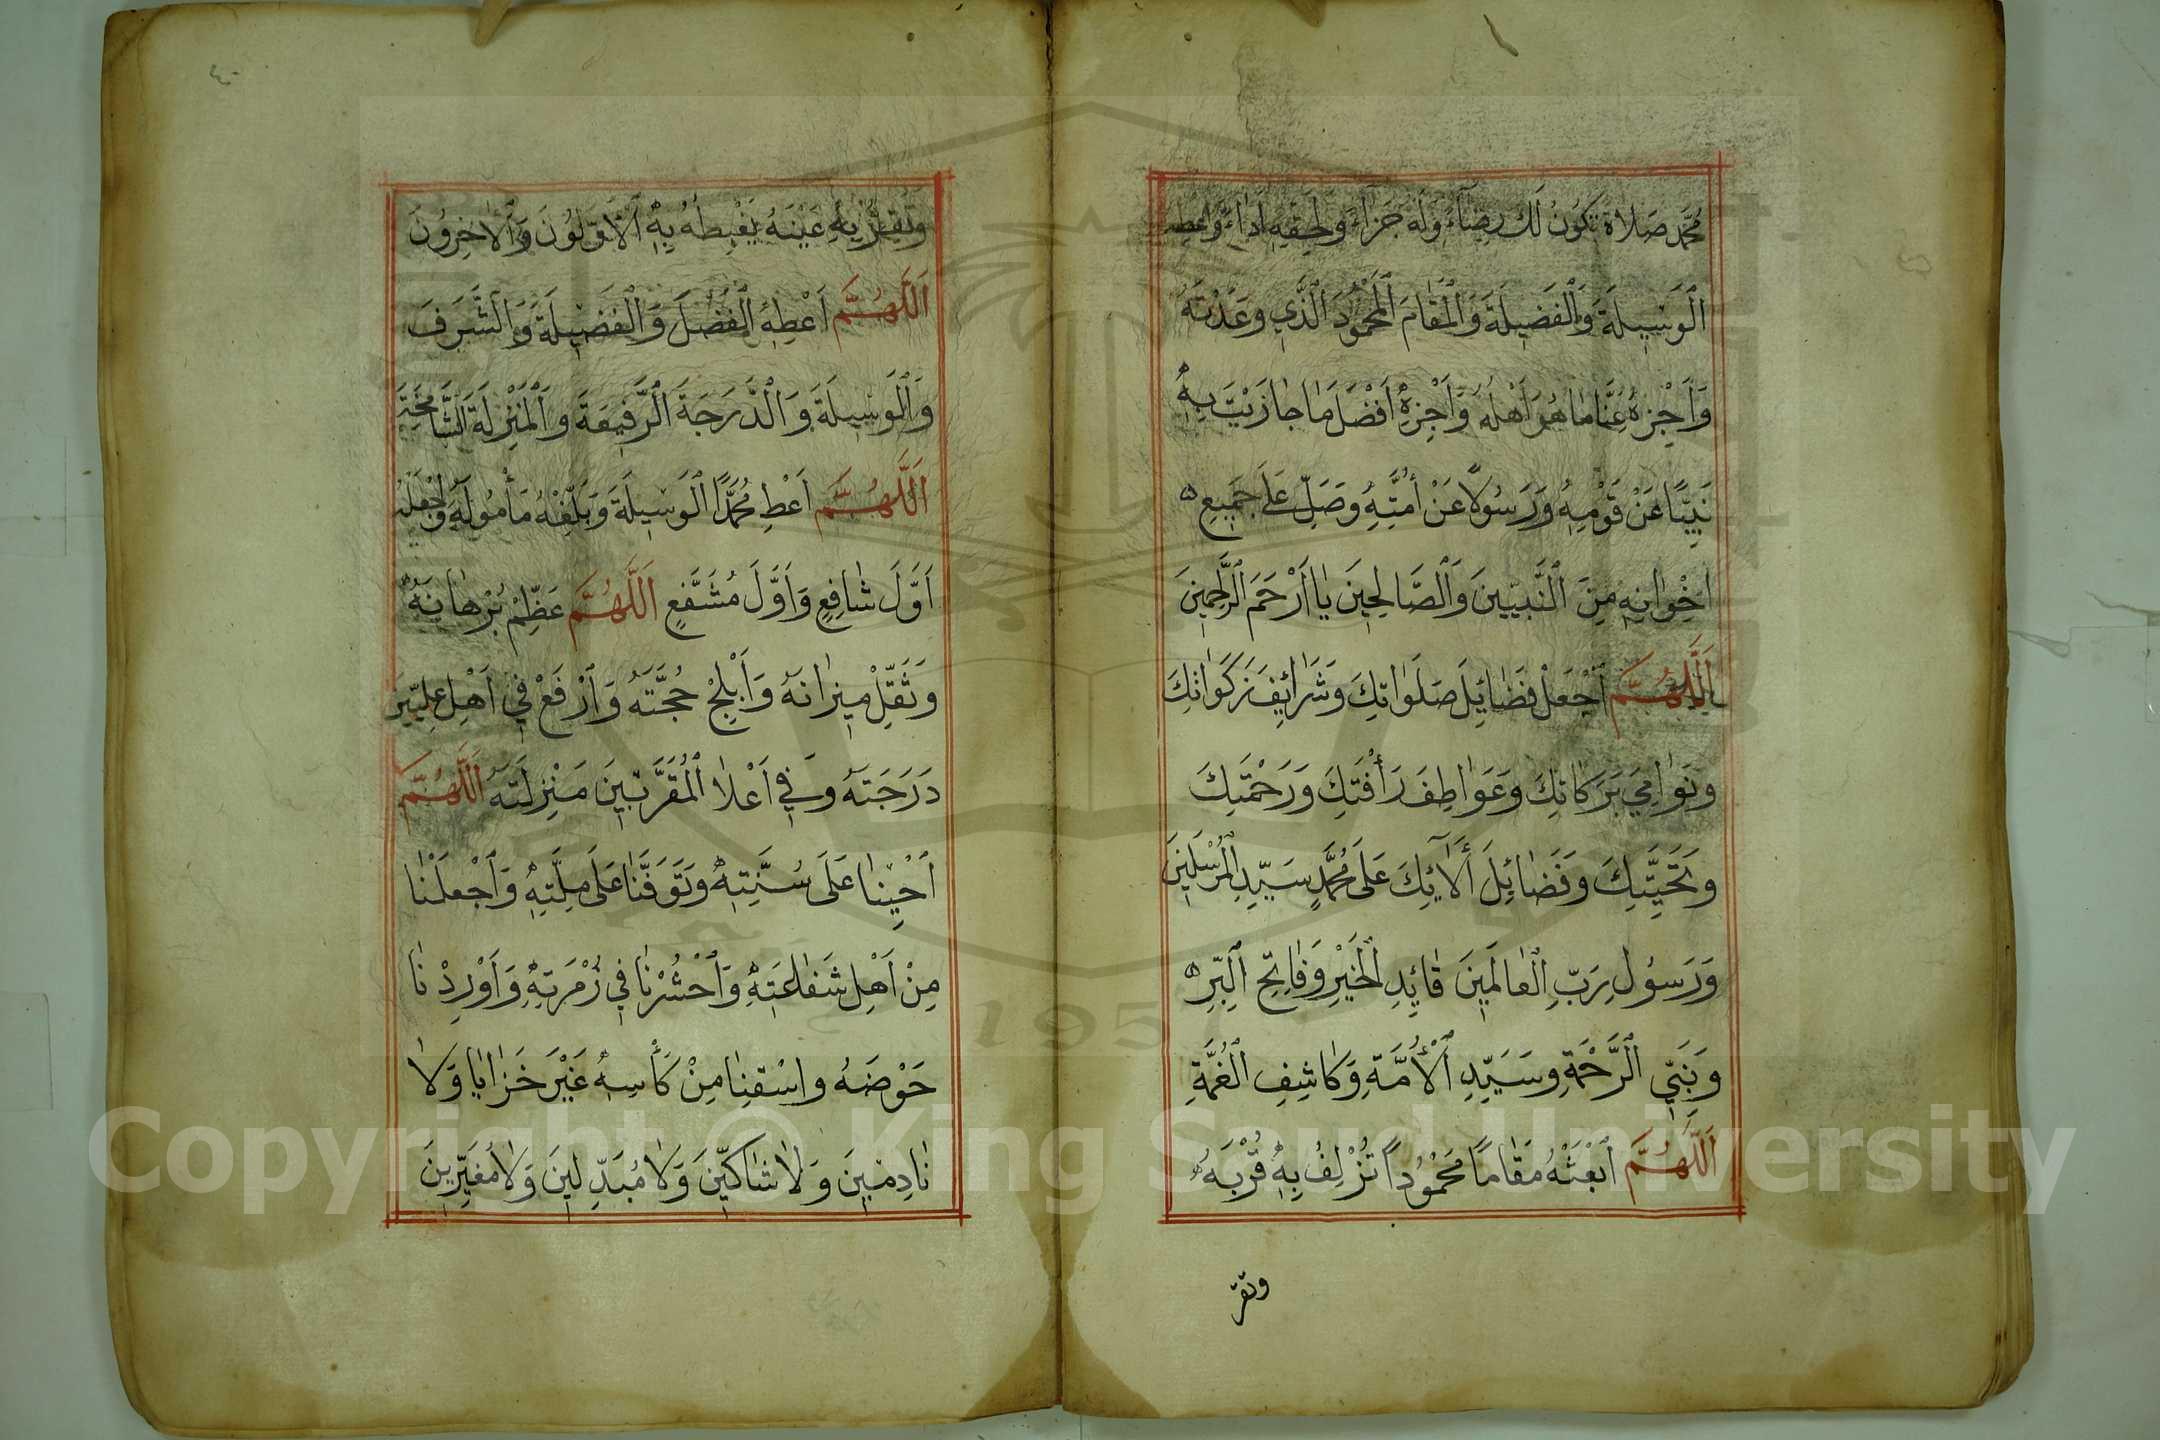 مُحَمَّد صَلَاةً تَكُونُ لَكَ رِضَآءً وَلَهُ جَزَآءً وَلِحَقِّهِ أَدَاءً وَاعْطِهِ
اَلْوَسِيلَةَ وَالْفَضِيلَةَ وَالْمَقَامَ الْمَحْمُودَ الَّذِي وَعَدْتَهُ
وَاَجْزِهِ عَنَّا مَا هُوَ اَهْلُهُ وَاَجْزِهِ اَفْضَلَ مَا جَازَيْتَ بِهِ
نَبِيًّا عَنْ قَوْمِهِ وَرَسُولًا عَنْ أُمَّتِهِ وَصَلِّ عَلَى جَمِيعِ
اِخْوَانِهِ مِنَ النَّبِيّينَ وَالصَّالِحِينَ يَا اَرْحَمَ الرَّاحِمِينَ
اَللَّهُمَّ اَجْعَلْ فَضَائِلَ صَلَوَاتِكَ وَشَرَائِفَ زَكَوَاتِكَ
وَنَوَامِيَ بَرَكَاتِكَ وَعَوَاطِفَ رَأْفَتِكَ وَرَحْمَتِكَ
وَتَحِيَّتِكَ وَفَضَائِلَ أَلَآئِكَ عَلَى مُحَمَّدٍ سَيِّدِ الْمُرْسَلِينَ
وَرَسُولِ رَبِّ الْعَالَمِينَ قَائِدِ الْخَيْرِ وَفَاتِحِ الْبِرِّ
وَنَبِيِّ الرَّحْمَةِ وَسَيِّدِ الْأُمَّةِ وَكَاشِفِ الْغُمَّةِ
اَللَّهُمَّ اَبْعَثْهُ مَقَامًا مَحْمُودًا تُزْلِفُ بِهِ قُرْبَهُ
وتقرّ
وَتُقِرُّ بِهِ عَيْنَهُ يَغْبِطُهُ بِهِ الْاَوَّلُونَ وَالْاٰخِرُونَ
اَللَّهُمَّ اَعْطِهِ الْفَضْلَ وَالْفَضِيلَةَ وَالشَّرَفَ
وَالْوَسِيلَةَ وَالدَّرَجَةَ الرَّفِيعَةَ وَالْمَنْزِلَةَ الشَّامِخَةَ
اَللَّهُمَّ اَعْطِ مُحَمَّدًا الْوَسِيلَةَ وَبَلِّغْهُ مَأْمُولَهُ وَاجْعَلْهُ
اَوَّلَ شَافِعٍ وَاَوَّلَ مُشَفَّعٍ اَللَّهُمَّ عَظِّمْ بُرْهَانَهُ
وَثَقِّلْ مِيزَانَهُ وَاَبْلِجْ حُجَّتَهُ وَاَرْفَعْ فِي اَهْلِ عِلِّيِّينَ
دَرَجَتَهُ وَفِي اَعْلَا الْمُقَرَّبِينَ مَنْزِلَتَهُ اَللَّهُمَّ
اَحْيِنَا عَلَى سُنَّتِهِ وَتَوَفَّنَا عَلَى مِلَّتِهِ وَاَجْعَلْنَا
مِنْ اَهْلِ شَفَاعَتِهِ وَاَحْشُرْنَا فِي زُمْرَتِهِ وَاَوْرِدْنَا
حَوْضَهُ وَاسْقِنَا مِنْ كَأْسِهِ غَيْرَ خَزَايَا وَلَا
نَادِمِينَ وَلَا شَاكِّينَ وَلَا مُبَدِّلِينَ وَلَا مُغَيِّرِينَ
Copyright © King Saud University
1957